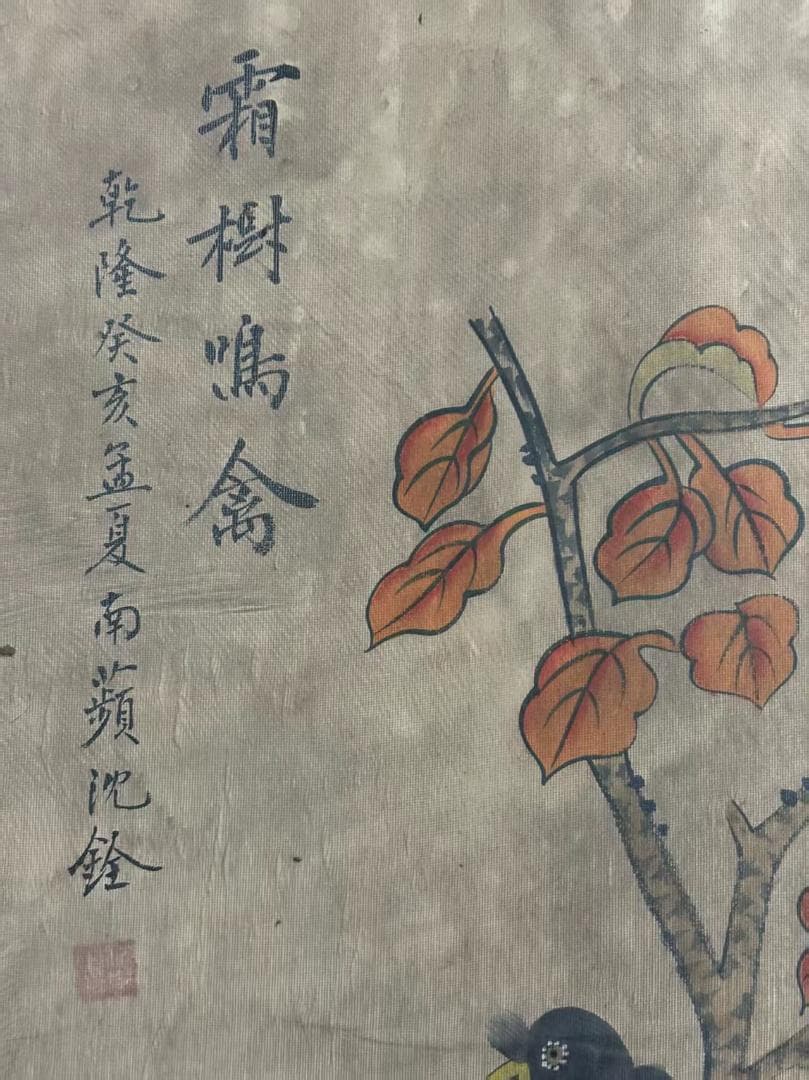 霜樹鳴禽
乾隆癸亥孟夏南蘋沈銓